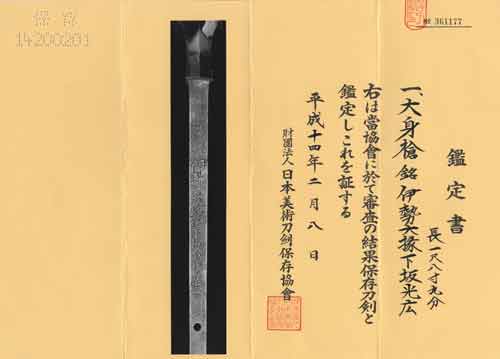 № 361177
鑑定書
一、大身槍 銘 伊勢大掾下坂光広
長一尺八寸九分
右は當協會に於て審査の結果保存刀剣と
鑑定しこれを証する
平成十四年二月八日
財団法人 日本美術刀剣保存協會
保存
14200201